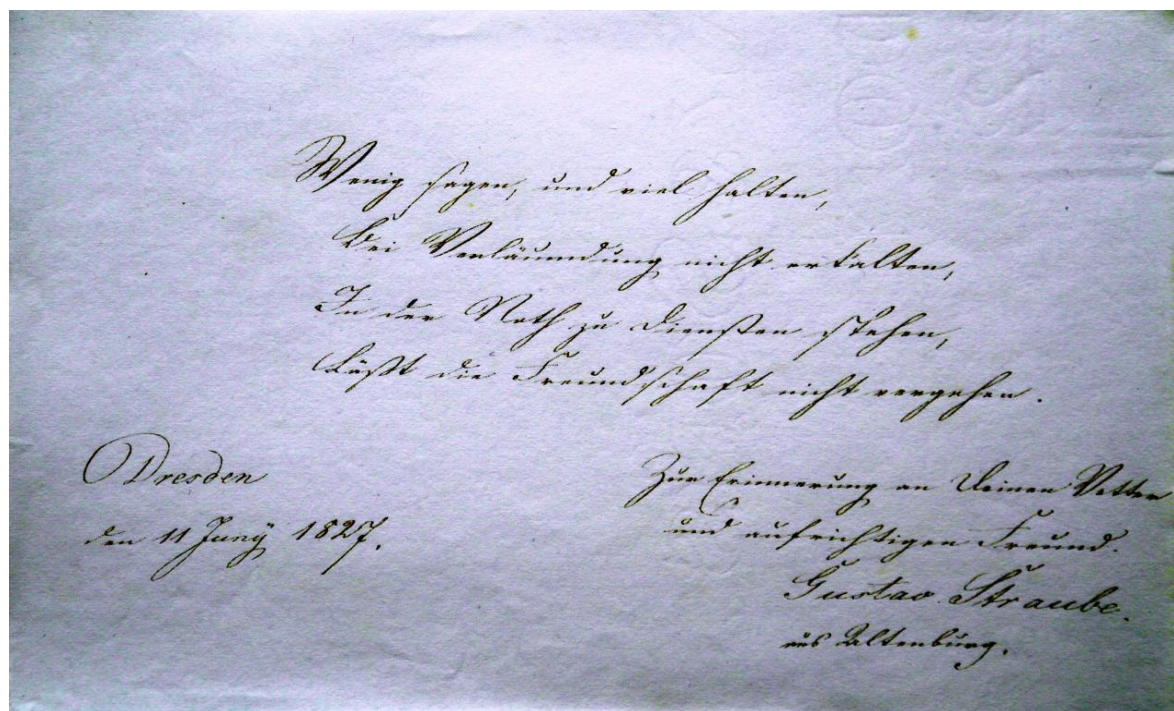 Wenig sagen, und viel halten,
Bei Verläumdung nicht erkalten,
In der Noth zu Diensten stehen,
Läßt die Freundschaft nicht vergehen.
Dresden
den 11 Juny 1827.
Zur Erinnerung an Deinen Vetter
und aufrichtigen Freund.
Gustav Straube.
aus Altenburg.